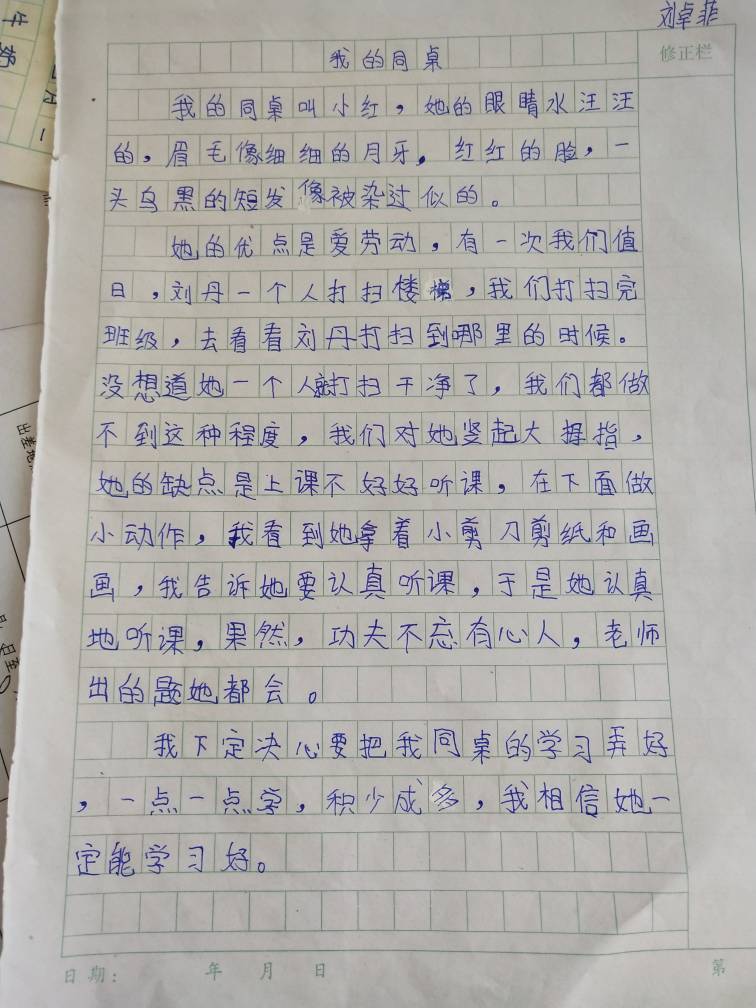 刘卓菲
修正栏
我的同桌
我的同桌叫小红，她的眼睛水汪汪
的，眉毛像细细的月牙。红红的脸，一
头乌黑的短发像被染过似的。
她的优点是爱劳动，有一次我们值
日，刘丹一个人打扫楼梯，我们打扫完
班级，去看看刘丹打扫到哪里的时候。
没想道她一个人就打扫干净了，我们都做
不到这种程度，我们对她竖起大拇指，
她的缺点是上课不好好听课，在下面做
小动作，我看到她拿着小剪刀剪纸和画
画，我告诉她要认真听课，于是她认真
地听课，果然，功夫不忘有心人，老师
出的题她都会。
我下定决心要把我同桌的学习弄好
，一点一点学，积少成多，我相信她一
定能学习好。
日期： 年 月 日 第